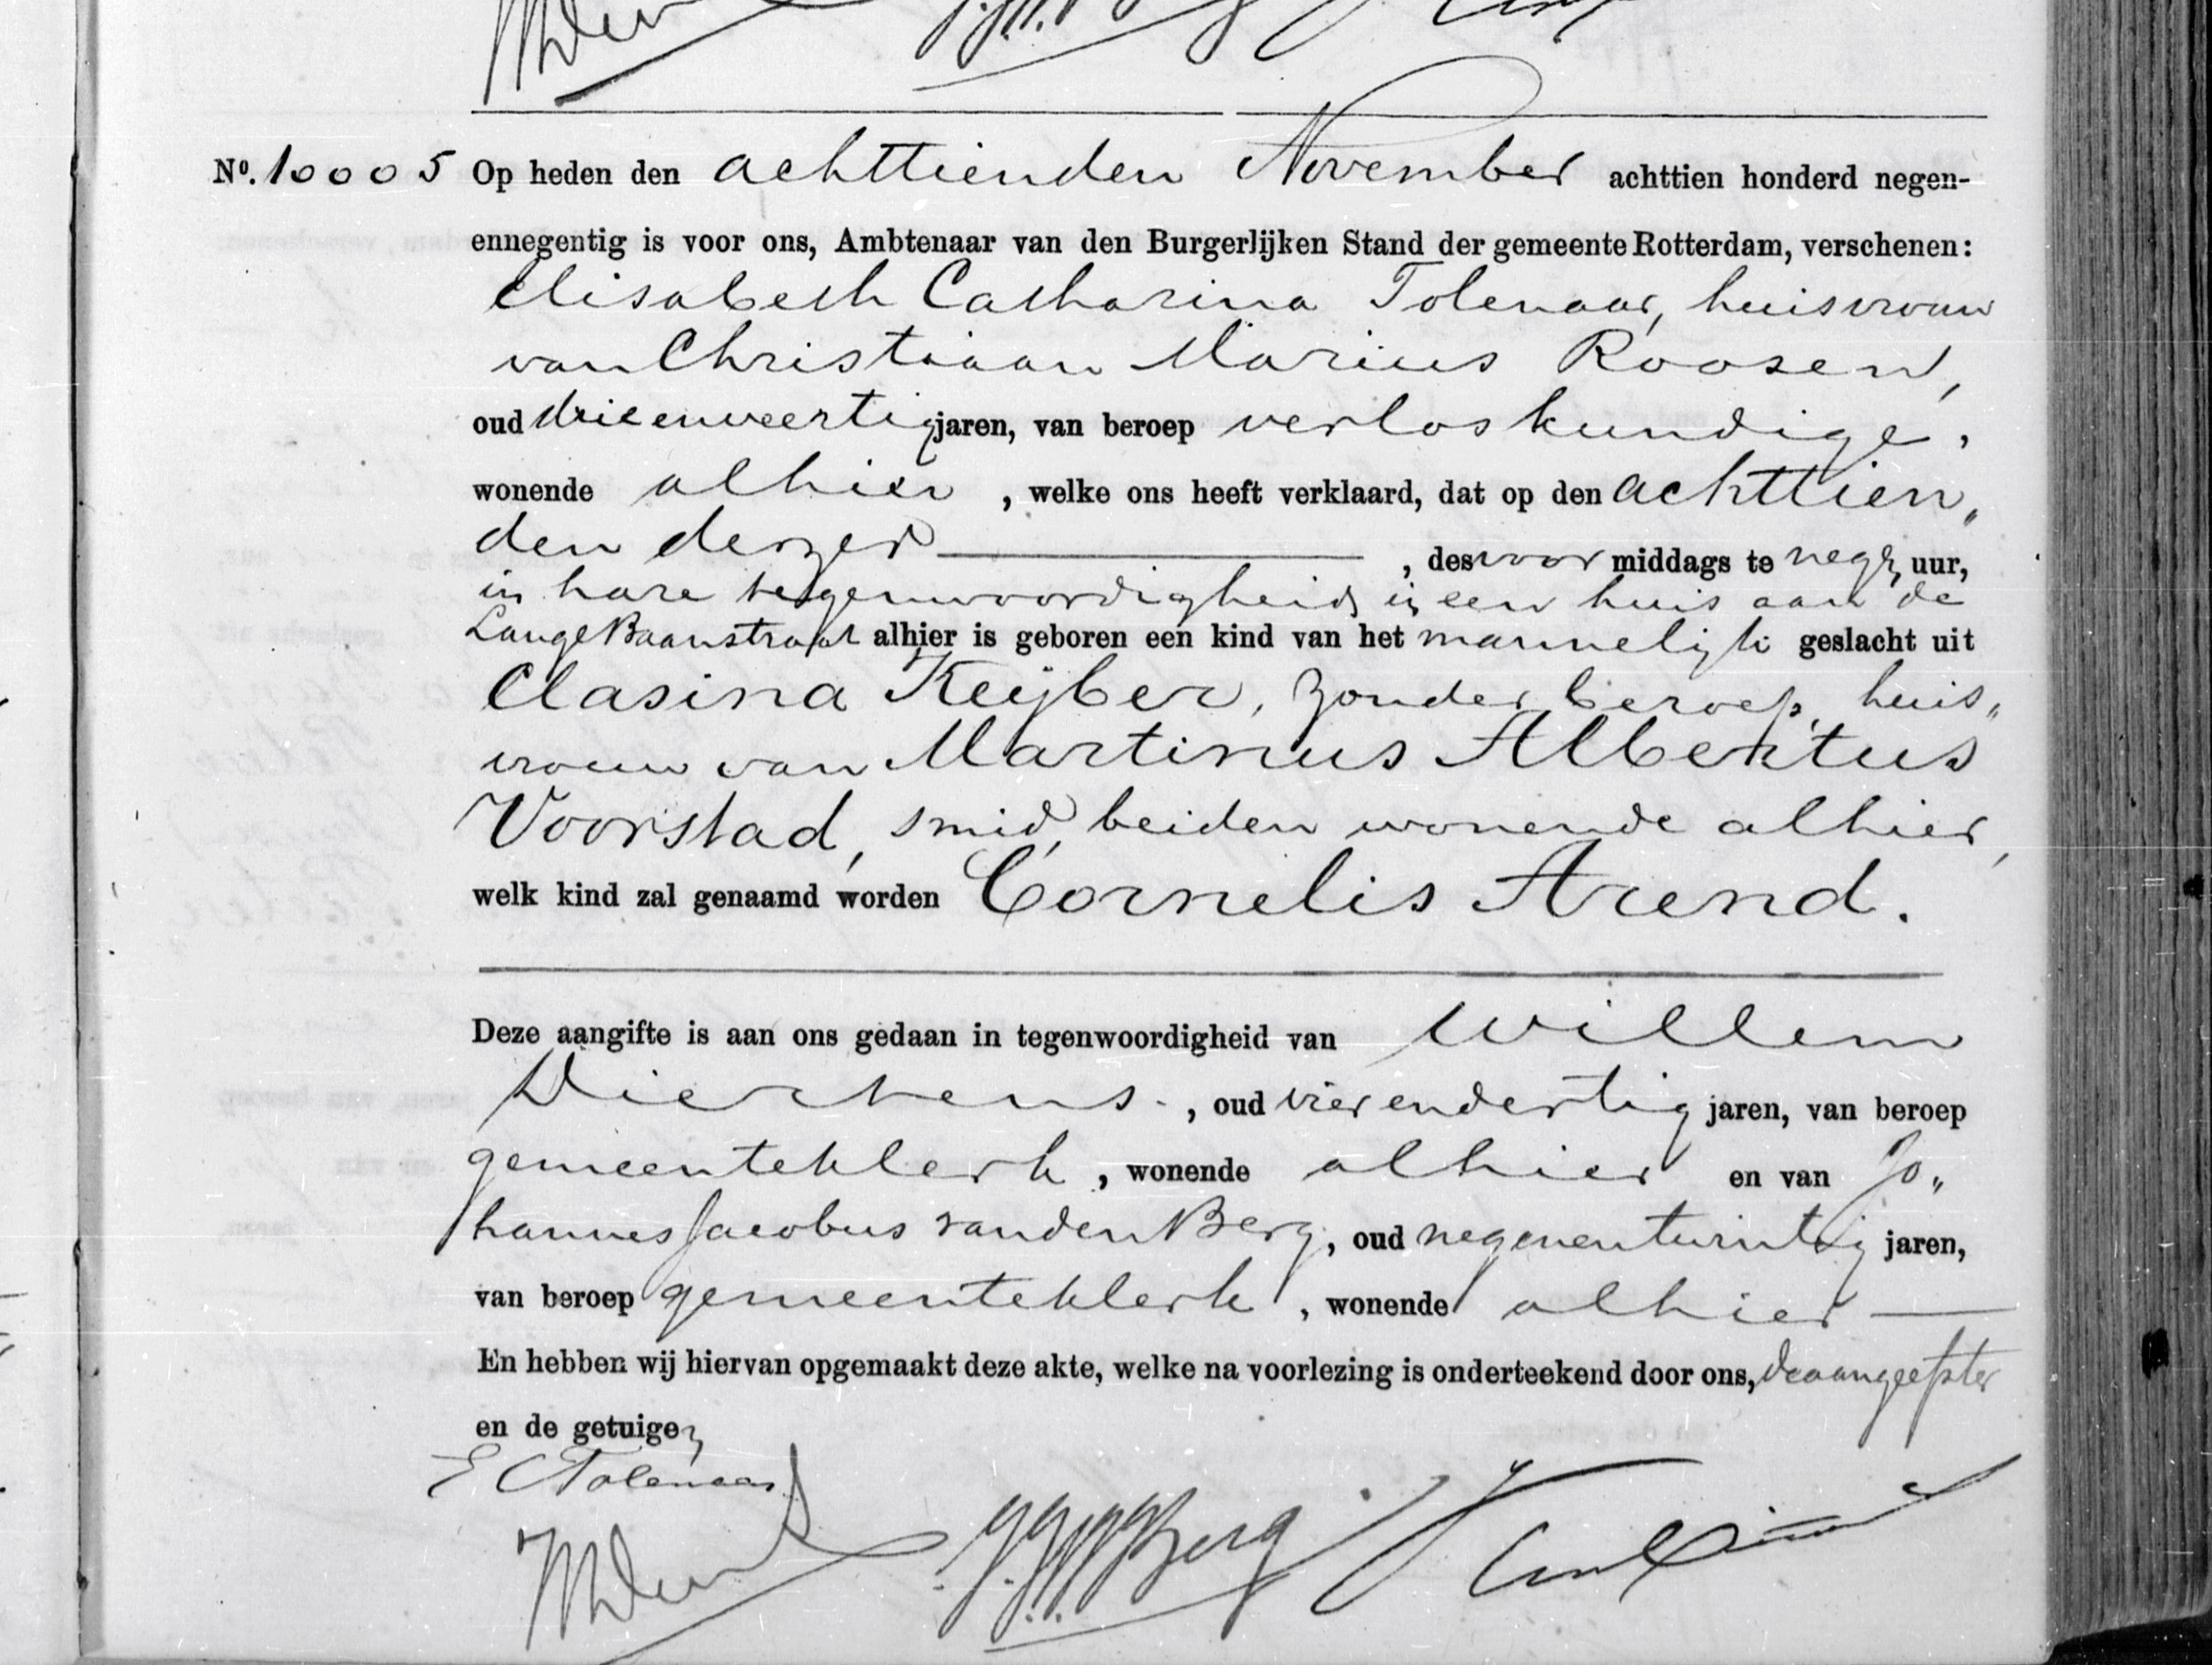 No. 10005 Op heden den achttienden November achttien honderd negen-
ennegentig is voor ons, Ambtenaar van den Burgerlijken Stand der gemeente Rotterdam, verschenen:
Elisabeth Catharina Tolenaar, huisvrouw
van Christiaan Marius Roosen,
oud drieenveertig jaren, van beroep verloskundige,
wonende alhier, welke ons heeft verklaard, dat op den achttien„
den dezer, des voormiddags te negen uur,
in hare tegenwoordigheid in een huis aan de
Lange Baanstraat alhier is geboren een kind van het mannelijk geslacht uit
Clasina Keyber, zonder beroep, huis„
vrouw van Martinus Albertus
Voorstad, smid, beiden wonende alhier,
welk kind zal genaamd worden Cornelis Arend.
Deze aangifte is aan ons gedaan in tegenwoordigheid van Willem
Dierkens, oud vierendertig jaren, van beroep
gemeenteklerk, wonende alhier en van Jo„
hannes Jacobus van den Berg, oud negenentwintig jaren,
van beroep gemeenteklerk, wonende alhier
En hebben wij hiervan opgemaakt deze akte, welke na voorlezing is onderteekend door ons, de aangeefster
en de getuigen
E C Tolenaar